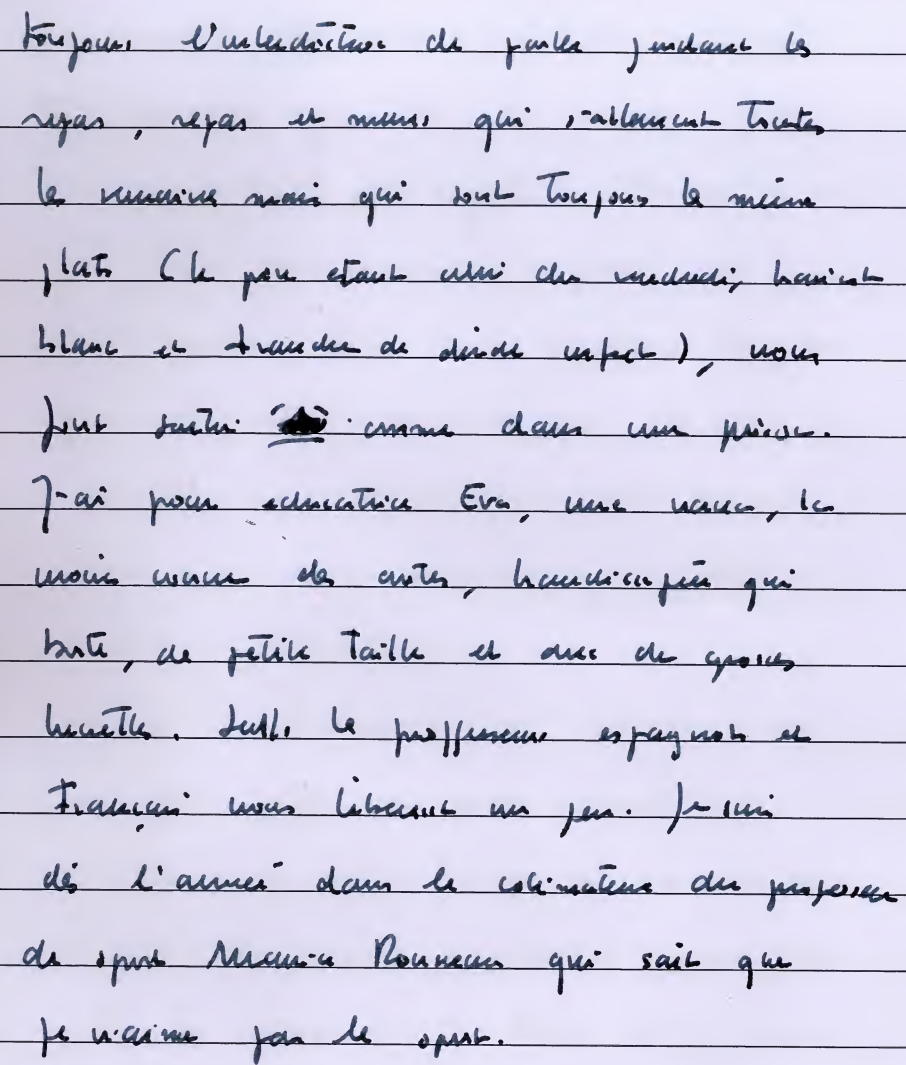 toujours l'interdiction de parler pendant les
repas, repas et menus qui s'alternent toutes
les semaines mais qui sont toujours les même
plats (le pire etant celui du vendredi, haricot
blanc et tranche de dinde infect), nous
font sentir comme dans une prison.
J'ai pour educatrice Eva, une vache, la
moins vache des autres, handicapée qui
boite, de petite taille et avec de grosses
lunettes. Seuls le proffesseurs espagnols et
Français nous liberent un peu. Je suis
dès l'année dans le colimateur du professeur
de sport Maurice Bonneau qui sait que
je n'aime pas le sport.